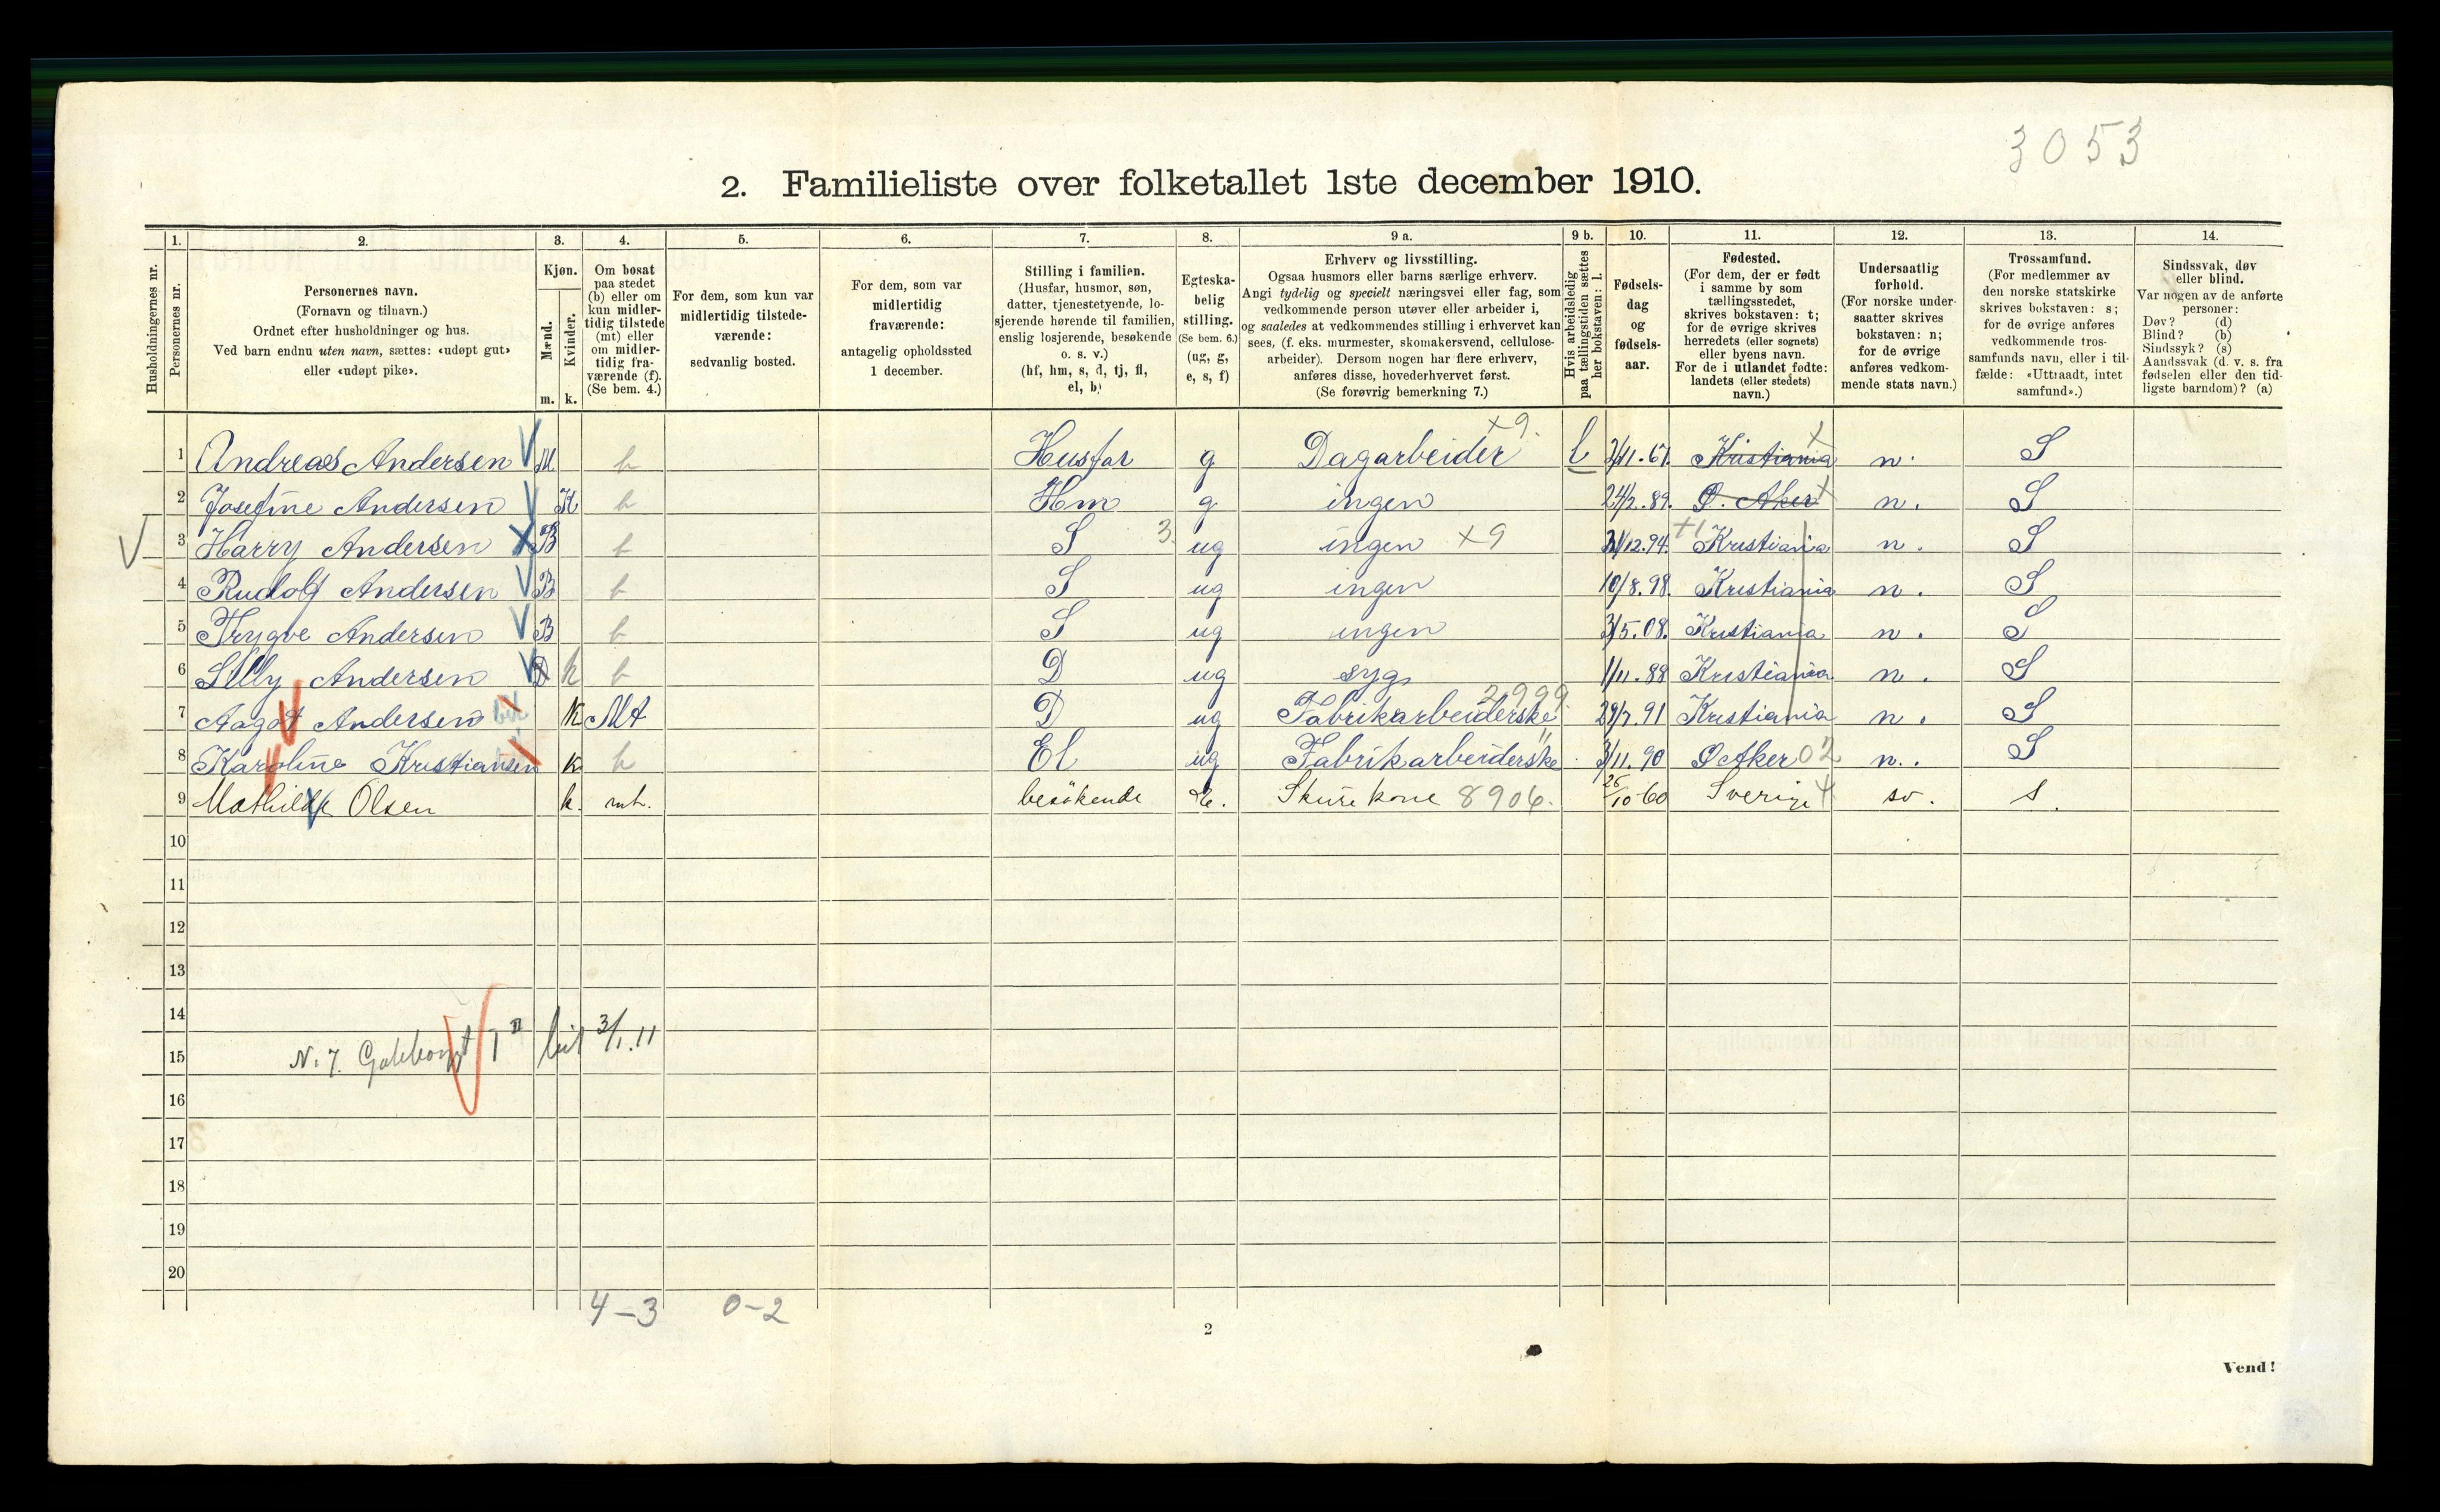 3053
2. Familieliste over folketallet 1ste december 1910.
Husholdningernes nr.
1. Personernes nr.
2. Personernes navn. (Fornavn og tilnavn.) Ordnet efter husholdninger og hus. Ved barn endnu uten navn, sættes: «udøpt gut» eller «udøpt pike».
3. Kjøn. Mænd. m. Kvinder. k.
4. Om bosat paa stedet (b) eller om kun midler-tidig tilstede (mt) eller om midler-tidig fra-værende (f). (Se bem. 4.)
5. For dem, som kun var midlertidig tilstede-værende: sedvanlig bosted.
6. For dem, som var midlertidig fraværende: antagelig opholdssted 1 december.
7. Stilling i familien. (Husfar, husmor, søn, datter, tjenestetyende, lo-sjerende hørende til familien, enslig losjerende, besøkende o. s. v.) (hf, hm, s, d, tj, fl, el, b)
8. Egteska-belig stilling. (Se bem. 6.) (ug, g, e, s, f)
9 a. Erhverv og livsstilling. Ogsaa husmors eller barns særlige erhverv. Angi tydelig og specielt næringsvei eller fag, som vedkommende person utøver eller arbeider i, og saaledes at vedkommendes stilling i erhvervet kan sees, (f. eks. murmester, skomakersvend, cellulose-arbeider). Dersom nogen har flere erhverv, anføres disse, hovederhvervet først. (Se forøvrig bemerkning 7.)
9 b. Hvis arbeidsledig paa tællingstiden sættes her bokstaven: l.
10. Fødsels-dag og fødsels-aar.
11. Fødested. (For dem, der er født i samme by som tællingsstedet, skrives bokstaven: t; for de øvrige skrives herredets (eller sognets) eller byens navn. For de i utlandet fødte: landets (eller stedets) navn.)
12. Undersaatlig forhold. (For norske under-saatter skrives bokstaven: n; for de øvrige anføres vedkom-mende stats navn.)
13. Trossamfund. (For medlemmer av den norske statskirke skrives bokstaven: s; for de øvrige anføres vedkommende tros-samfunds navn, eller i til-fælde: «Uttraadt, intet samfund».)
14. Sindssvak, døv eller blind. Var nogen av de anførte personer: Døv? (d) Blind? (b) Sindssyk? (s) Aandssvak (d. v. s. fra fødselen eller den tid-ligste barndom)? (a)
1 Andreas Andersen M b Husfar g Dagarbeider x9. l Kristiania x n. S
2 Josefine Andersen K b Hm g ingen 24/2.89. Ø. Aker x n. S
3 Harry Andersen B b S 3 ug ingen x9 31/12.94. +1 Kristiania n. S
4 Rudolf Andersen B b S ug ingen 10/8.98. Kristiania n. S
5 Trygve Andersen B b S ug ingen 3/5.08. Kristiania n. S
6 Lilly Andersen D k b D ug syg 1/11.88 Kristiania n. S
7 Aagot Andersen K Mt D ug Fabrikarbeiderske 2999 29/7.91 Kristiania n. S
8 Karoline Kristiansen K b El ug Fabrikarbeiderske " 3/11.90 Ø Aker 02 n. S
9 Mathilde Olsen k. mt. besökende e. Skurekone 8906. 25/10-60 Sverige 4 sv. s.
10
11
12
13
14
15 N. 7. bit 3/1.11
16
17
18
19
20
4-3 0-2
2
Vend!